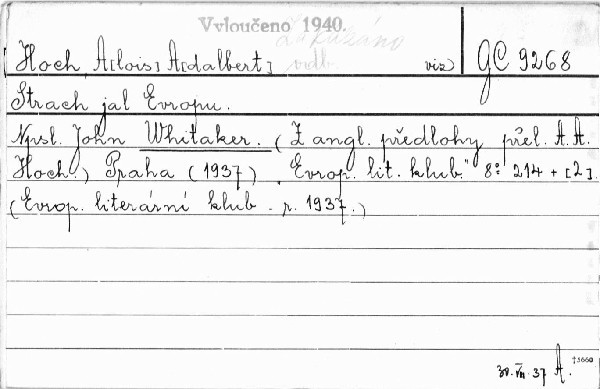 Vyloučeno 1940.
Zakázáno
Hoch, A[lois] A[dalbert] viz) GC 9268
Strach jal Evropu.
Npsl. John Whitaker. (Z angl. předlohy přel. A. A.
Hoch.) Praha (1937) „Evrop. lit. klub“ 8° 214 + [2].
(Evrop. literární klub - r. 1937.)
30. VII. 37 A. †5660